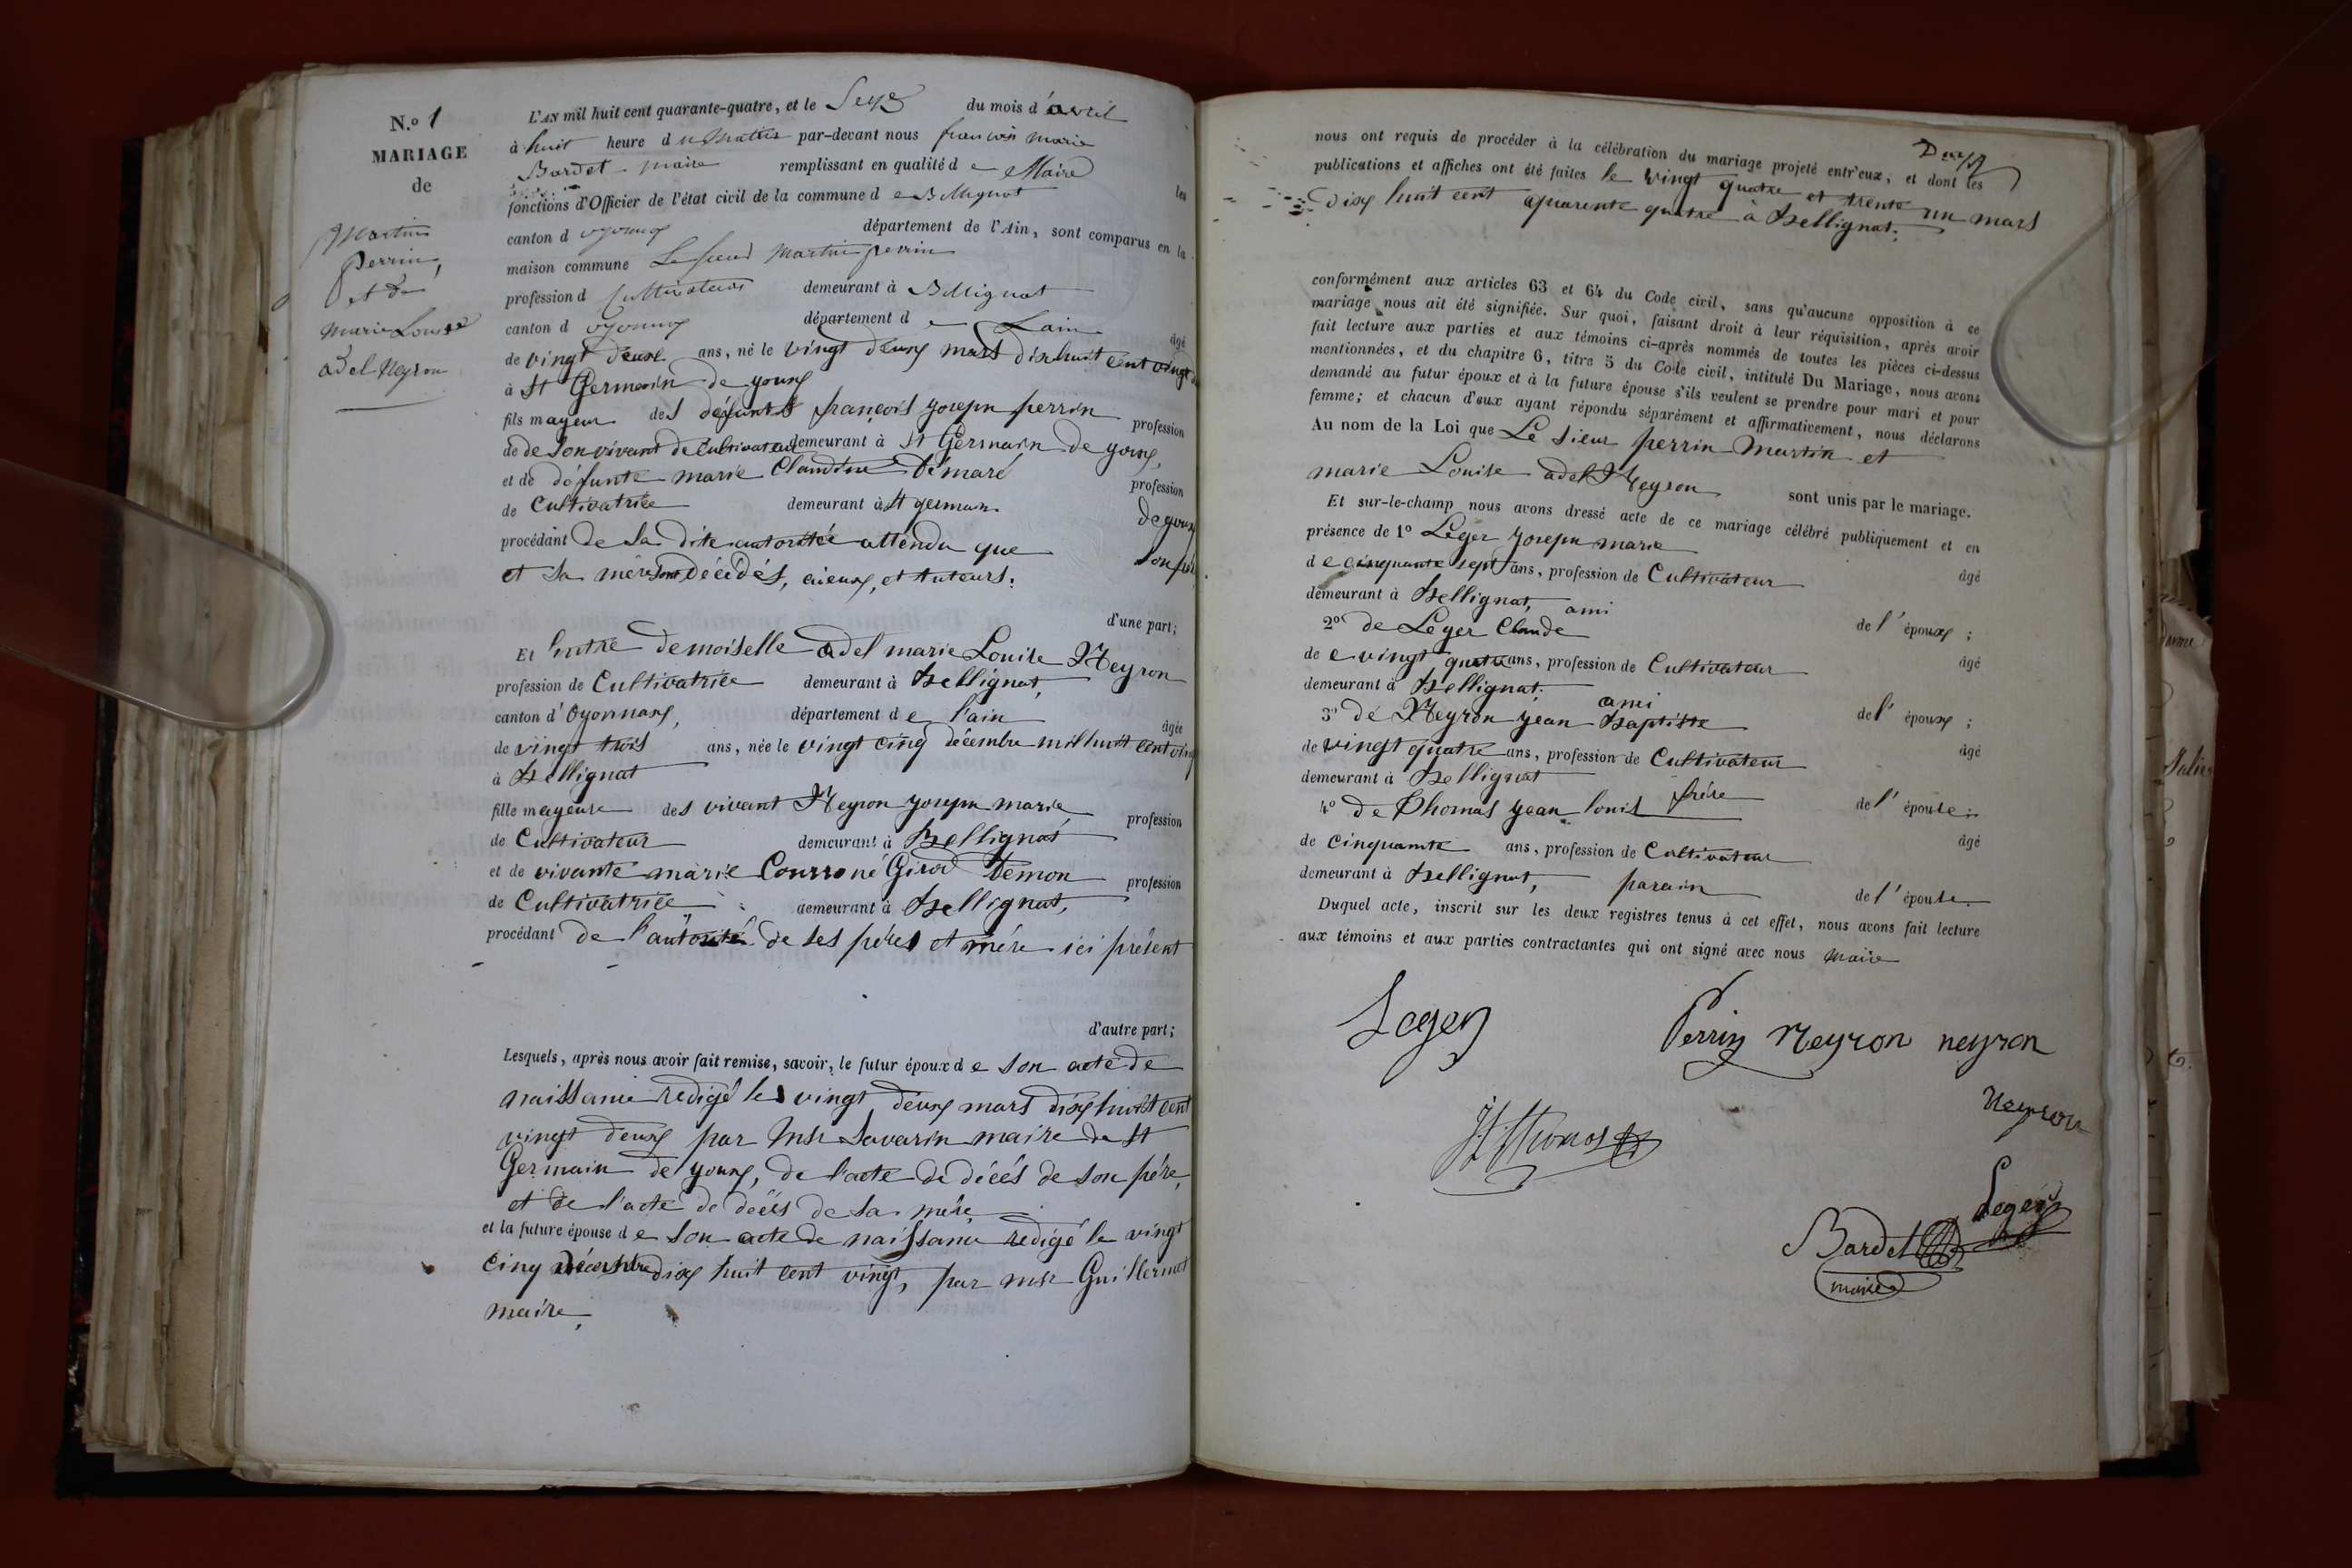 N.º 1
MARIAGE
de
Martin
Perrin,
et de
Marie Louise
adel Neyron
L'AN mil huit cent quarante-quatre, et le Seize du mois d'avril
à huit heure du Matin par-devant nous francois marie
Bardet maire remplissant en qualité de Maire les
fonctions d'Officier de l'état civil de la commune de Bellignat
canton d'oyonnax département de l'Ain, sont comparus en la
maison commune Le sieur Martin perrin
profession d Cultivateur demeurant à Bellignat
canton d oyonnax département de Lain âgé
de vingt deux ans, né le vingt deux mars dix huit cent vingt
à St Germain de youx
fils mayeur des défunts françois yoseph perrin profession
de de son vivant de Cultivateur demeurant à St Germain de youx,
et de défunte marie Claudine profession
de Cultivatrice demeurant à St germain de youx
procédant de Sa dite autorité attendu que son père
et sa mère sont décédés, aieux, et tuteurs.
d'une part;
Et entre demoiselle adel marie Louise Neyron
profession de Cultivatrice demeurant à Bellignat,
canton d'Oyonnax, département de l'ain âgée
de vingt trois ans, née le vingt cinq décembre mil huit cent vingt
à Bellignat
fille mayeure des vivant Neyron yoseph marie profession
de Cultivateur demeurant à Bellignat
et de vivante marie Girod profession
de Cultivatrice demeurant à Bellignat,
procédant de l'autorité de ses pères et mère ici présent
d'autre part;
Lesquels, après nous avoir fait remise, savoir, le futur époux de son acte de
naissance redigé le vingt deux mars dix huit cent
vingt deux par Msr Savarin maire de St
Germain de youx, de l'acte de décés de son père,
et de l'acte de décés de sa mère
et la future épouse de son acte de naissance redigé le vingt
cinq décembre dix huit cent vingt, par msr Guillermet
maire,
nous ont requis de procéder à la célébration du mariage projeté entr'eux, et dont les Deux
publications et affiches ont été faites le vingt quatre et trente un mars
Dix huit cent quarente quatre à Bellignat.
conformément aux articles 63 et 64 du Code civil, sans qu'aucune opposition à ce
mariage nous ait été signifiée. Sur quoi, faisant droit à leur réquisition, après avoir
fait lecture aux parties et aux témoins ci-après nommés de toutes les pièces ci-dessus
mentionnées, et du chapitre 6, titre 5 du Code civil, intitulé Du Mariage, nous avons
demandé au futur époux et à la future épouse s'ils veulent se prendre pour mari et pour
femme; et chacun d'eux ayant répondu séparément et affirmativement, nous déclarons
Au nom de la Loi que Le sieur perrin Martin et
marie Louise adel Neyron sont unis par le mariage.
Et sur-le-champ nous avons dressé acte de ce mariage célébré publiquement et en
présence de 1º Léger yoseph marie âgé
de cinquante sept ans, profession de Cultivateur
demeurant à Bellignat, ami de l'époux;
2º de Léger Claude âgé
de vingt quatre ans, profession de Cultivateur
demeurant à Bellignat. ami de l'époux;
3º de Neyron yean Baptiste âgé
de vingt quatre ans, profession de Cultivateur
demeurant à Bellignat frère de l'épouse;
4º de Thomas yean louis âgé
de cinquante ans, profession de Cultivateur
demeurant à Bellignat, parain de l'épouse.
Duquel acte, inscrit sur les deux registres tenus à cet effet, nous avons fait lecture
aux témoins et aux parties contractantes qui ont signé avec nous Maire
Leger Perrin Neyron neyron
Neyron
JL Thomas
Leger
Bardet
maire